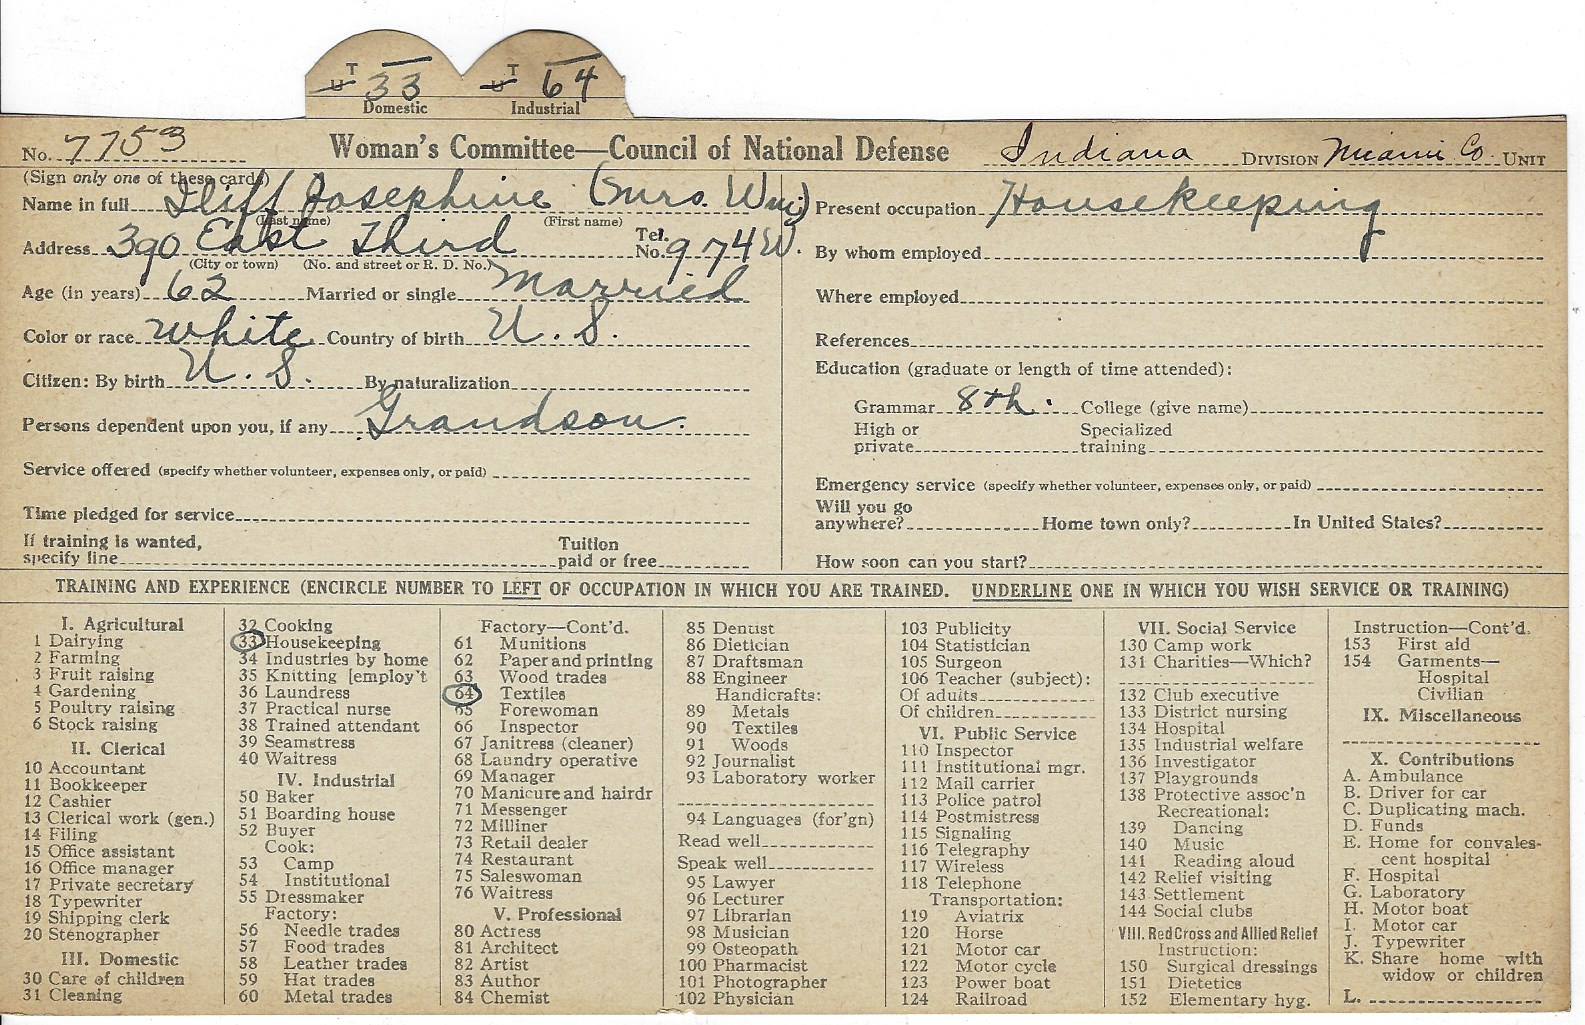 T
U 33
Domestic
T
U 64
Industrial
No. 7753 Woman's Committee—Council of National Defense Indiana DIVISION Miami Co. UNIT
(Sign only one of these cards)
Name in full Iliff Josephine (Mrs. Wm)
(Last name) (First name)
Address 390 East Third Tel. No. 974W.
(City or town) (No. and street or R. D. No.)
Age (in years) 62 Married or single Married
Color or race White Country of birth U. S.
Citizen: By birth U. S. By naturalization
Persons dependent upon you, if any Grandson.
Service offered (specify whether volunteer, expenses only, or paid)
Time pledged for service
If training is wanted,
specify line Tuition
paid or free
Present occupation Housekeeping
By whom employed
Where employed
References
Education (graduate or length of time attended):
Grammar 8th. College (give name)
High or Specialized
private training
Emergency service (specify whether volunteer, expenses only, or paid)
Will you go
anywhere? Home town only? In United States?
How soon can you start?
TRAINING AND EXPERIENCE (ENCIRCLE NUMBER TO LEFT OF OCCUPATION IN WHICH YOU ARE TRAINED. UNDERLINE ONE IN WHICH YOU WISH SERVICE OR TRAINING)
I. Agricultural
1 Dairying
2 Farming
3 Fruit raising
4 Gardening
5 Poultry raising
6 Stock raising
II. Clerical
10 Accountant
11 Bookkeeper
12 Cashier
13 Clerical work (gen.)
14 Filing
15 Office assistant
16 Office manager
17 Private secretary
18 Typewriter
19 Shipping clerk
20 Stenographer
III. Domestic
30 Care of children
31 Cleaning
32 Cooking
33 Housekeeping
34 Industries by home
35 Knitting [employ't
36 Laundress
37 Practical nurse
38 Trained attendant
39 Seamstress
40 Waitress
IV. Industrial
50 Baker
51 Boarding house
52 Buyer
Cook:
53 Camp
54 Institutional
55 Dressmaker
Factory:
56 Needle trades
57 Food trades
58 Leather trades
59 Hat trades
60 Metal trades
Factory—Cont'd.
61 Munitions
62 Paper and printing
63 Wood trades
64 Textiles
65 Forewoman
66 Inspector
67 Janitress (cleaner)
68 Laundry operative
69 Manager
70 Manicure and hairdr
71 Messenger
72 Milliner
73 Retail dealer
74 Restaurant
75 Saleswoman
76 Waitress
V. Professional
80 Actress
81 Architect
82 Artist
83 Author
84 Chemist
85 Dentist
86 Dietician
87 Draftsman
88 Engineer
Handicrafts:
89 Metals
90 Textiles
91 Woods
92 Journalist
93 Laboratory worker
94 Languages (for'gn)
Read well
Speak well
95 Lawyer
96 Lecturer
97 Librarian
98 Musician
99 Osteopath
100 Pharmacist
101 Photographer
102 Physician
103 Publicity
104 Statistician
105 Surgeon
106 Teacher (subject):
Of adults
Of children
VI. Public Service
110 Inspector
111 Institutional mgr.
112 Mail carrier
113 Police patrol
114 Postmistress
115 Signaling
116 Telegraphy
117 Wireless
118 Telephone
Transportation:
119 Aviatrix
120 Horse
121 Motor car
122 Motor cycle
123 Power boat
124 Railroad
VII. Social Service
130 Camp work
131 Charities—Which?
132 Club executive
133 District nursing
134 Hospital
135 Industrial welfare
136 Investigator
137 Playgrounds
138 Protective assoc'n
Recreational:
139 Dancing
140 Music
141 Reading aloud
142 Relief visiting
143 Settlement
144 Social clubs
VIII. Red Cross and Allied Relief
Instruction:
150 Surgical dressings
151 Dietetics
152 Elementary hyg.
Instruction—Cont'd.
153 First aid
154 Garments—
Hospital
Civilian
IX. Miscellaneous
X. Contributions
A. Ambulance
B. Driver for car
C. Duplicating mach.
D. Funds
E. Home for convales-
cent hospital
F. Hospital
G. Laboratory
H. Motor boat
I. Motor car
J. Typewriter
K. Share home with
widow or children
L.